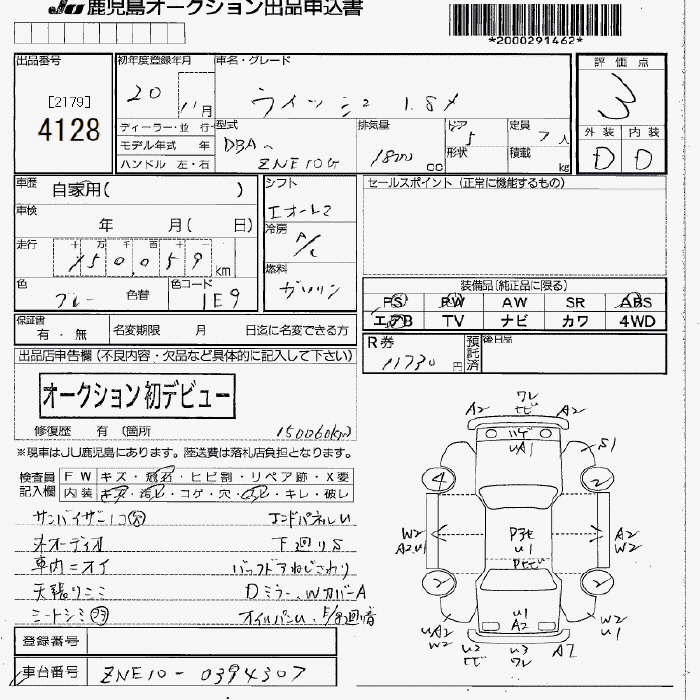 JU 鹿児島オークション出品申込書
*2000291462*
出品番号
[2179]
4128
初年度登録年月 20 11月
車名・グレード
ウィッシュ 1.8X
評価点
3
外装 内装
D D
ディーラー・並 行
モデル年式 年
ハンドル 左・右
型式
DBA
ZNE10G
排気量
1800 cc
ドア 5
形状
定員 7 人
積載 kg
車歴 自家用( )
車検 年 月( 日)
走行 十 万 千 百 十
150,059 km
色 グレー 色替
色コード 1E9
シフト
冷房 A/C
燃料 ガソリン
セールスポイント (正常に機能するもの)
装備品(純正品に限る)
PS PW AW SR ABS
エアB TV ナビ カワ 4WD
保証書 有・無
名変期限 月 日迄に名変できる方
R券 11730 円
預託済
後日品
出品店申告欄(不良内容・欠品など具体的に記入して下さい)
オークション初デビュー
修復歴 有 (箇所 150060km)
※現車はJU鹿児島にあります。陸送費は落札店負担となります。
検査員記入欄
FW キズ・飛石・ヒビ割・リペア跡・X要
内装 キズ・汚レ・コゲ・穴・キレ・破レ
サンバイザー1コ欠 エンドパネルU
オーディオ 下廻りS
車内ニオイ バックドアねじこわり
天張りシミ Dミラー、WカバーA
シートシミ オイルパンU、
登録番号
車台番号 ZNE10-0394307
ワレ
A2 ヒビ A2
ハゲ
UA1
S1
4 2
W2
A2U1
U1
A2
W2
2 2
U1
A2
UA2
W2
W2
U1
U2
ヒビ
U3
ワレ
A2